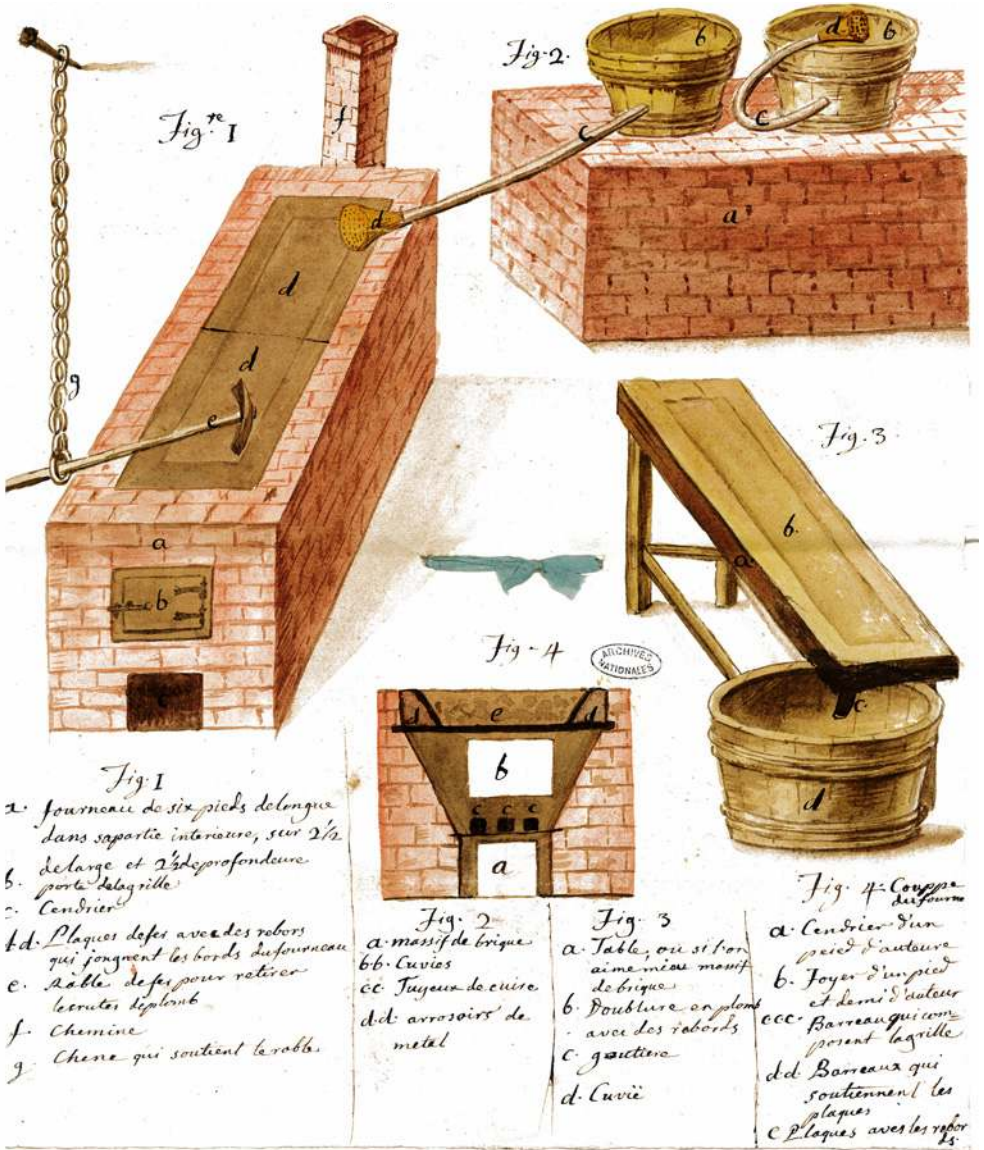 Fig.re 1
Fig. 2.
Fig. 3
Fig. 4
f
d
d
d
e
g
a
b
c
b
d
b
c
c
a
b.
a
c
d
ARCHIVES
NATIONALES
d
e
d
b
c c c
a
Fig. 1
a. fourneau de six pieds de longue
dans sapartie interieure, sur 2 1/2
de large et 2 1/2 de profondeure
b. porte delagrille
c. Cendrier
d d. Plaques defer avec des rebors
qui jongnent les bords dufourneau
e. Rable defer pour retirer
lecrutes deplomb
f. Chemine
g Chene qui soutient le rable
Fig. 2
a. massif de brique
bb. Cuvies
cc Tuyeux de cuire
d.d. arrosoirs de
metal
Fig. 3
a. Table, ou si l'on
aime mieu massif
de brique
b. Doublure en plomb
avec des rabords
c. goutiere
d. Cuvië
Fig. 4 Couppe
du fourne
a. Cendrier d'un
peied d'auteure
b. Foyer d'un pied
et demi d'auteur
ccc. Barreau qui com-
posent lagrille
d.d. Barreaux qui
soutiennent les
plaques
e Plaques aves les rebor
ds.